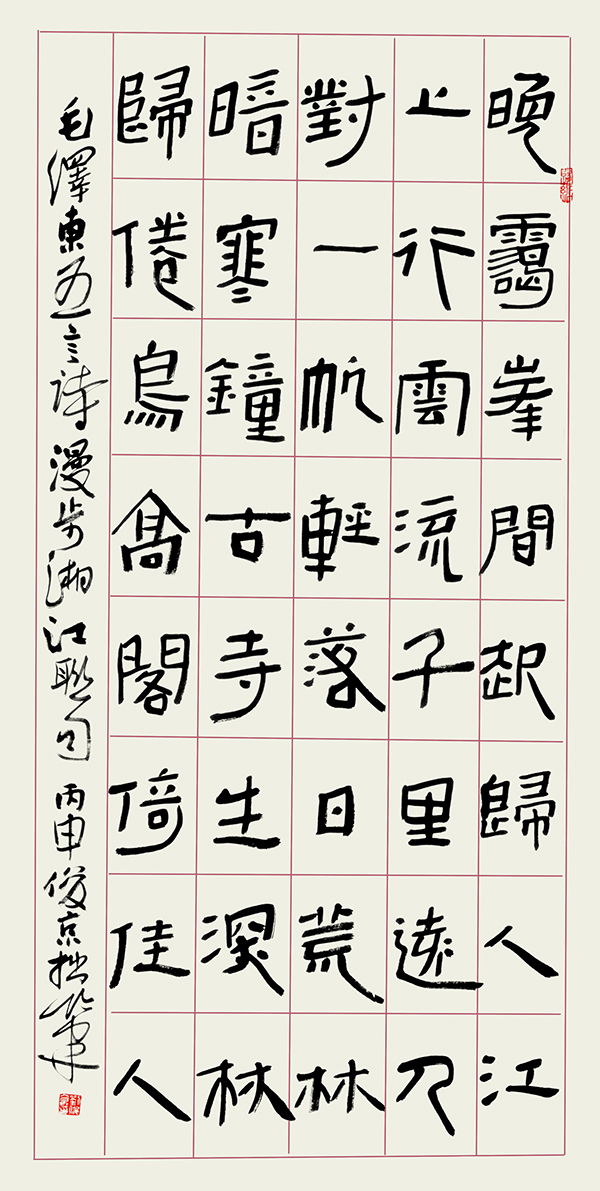 晚靄峯間起歸人江
上行雲流千里遠人
對一帆輕落日荒林
暗寒鐘古寺生深林
歸倦鳥高閣倚佳人
毛澤東五言詩漫步湘江聯句 丙申俊京拙筆